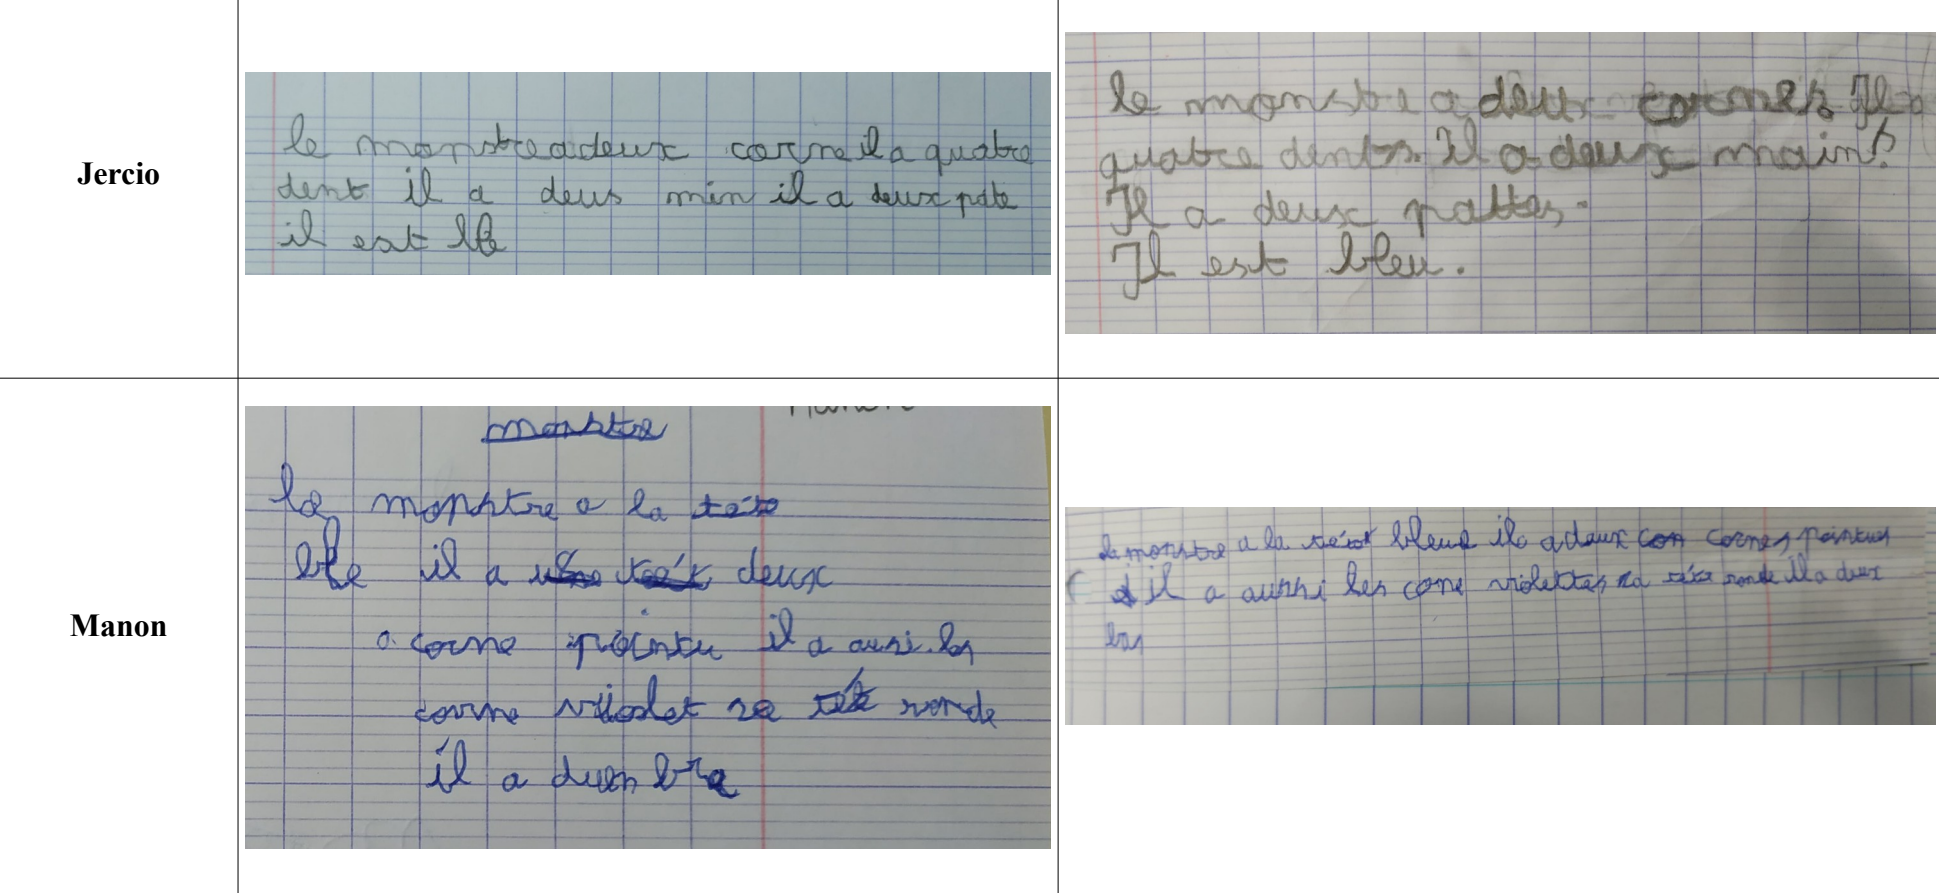 Jercio
le monstre a deux corne il a quatre
dent il a deus min il a deux pate
il est
le monstre a deux cornes. Il a
quatre dents. Il a deux mains.
Il a deux pattes.
Il est bleu.
Manon
monstre
le monstre a la
ble il a deux
corne pointu il a ausi les
corne violet ronde
il a bra
le monstre a la bleue il a deux cornes pointues
il a aussi les corne violettes ronde il a deux